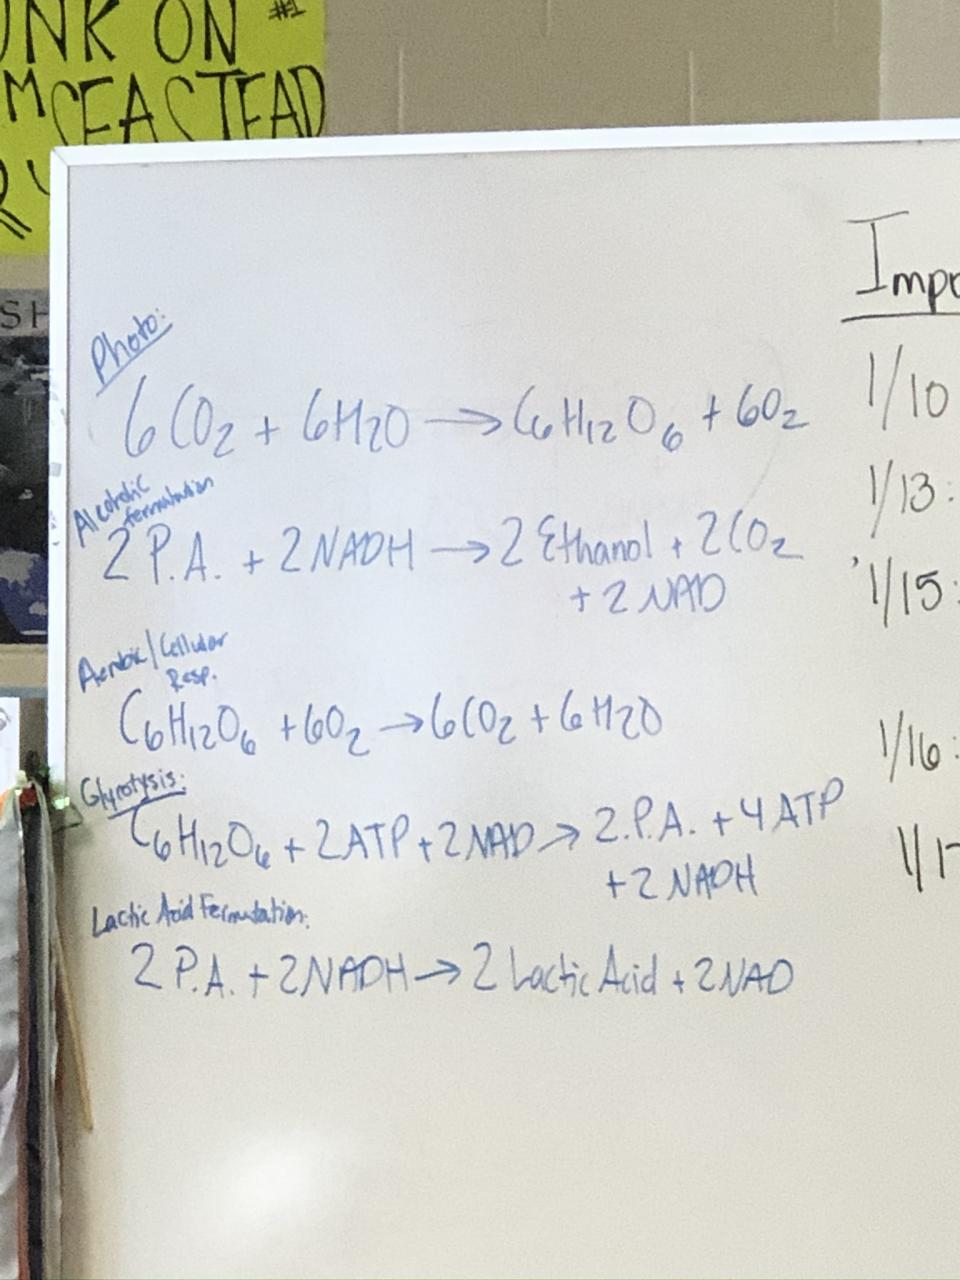 UNK ON #1
M CEASTEAD
SH
Photo:
6CO₂ + 6H2O → C₆H₁₂O₆ + 6O₂
Alcoholic
fermutation
2 P.A. + 2NADH → 2 Ethanol + 2CO₂
+ 2 NAD
Aerobic/Cellular
Resp.
C₆H₁₂O₆ + 6O₂ → 6CO₂ + 6H2O
Glycolysis:
C₆H₁₂O₆ + 2ATP + 2NAD → 2.P.A. + 4 ATP
+ 2 NADH
Lactic Acid Fermutation:
2 P.A. + 2NADH → 2 Lactic Acid + 2NAD
Impo
1/10
1/13:
1/15:
1/16:
1/17